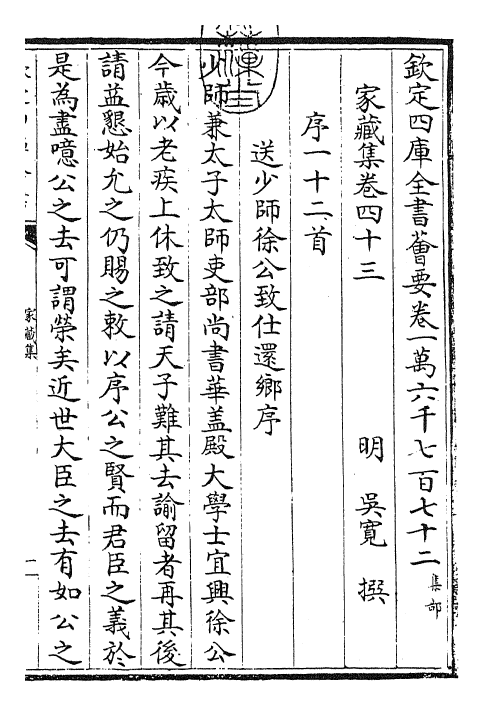 欽定四庫全書薈要卷一萬六千七百七十二 集部
家藏集卷四十三 明 吳寬 撰
序一十二首
送少師徐公致仕還鄉序
少師兼太子太師吏部尚書華盖殿大學士宜興徐公
今歲以老疾上休致之請天子難其去諭留者再其後
請益懇始允之仍賜之敕以序公之賢而君臣之義於
是為盡噫公之去可謂榮矣近世大臣之去有如公之
家藏集
一